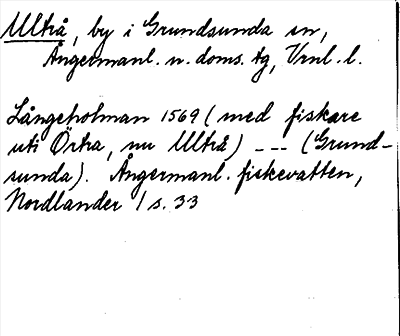 Ultrå, by i Grundsunda sn,
Ångermanl. n. doms. tg, Vrnl. l.
Långeholman 1569 (med fiskare
uti Örtra, nu Ultrå) --- (Grund-
sunda). Ångermanl. fiskevatten,
Nordlander / s. 33